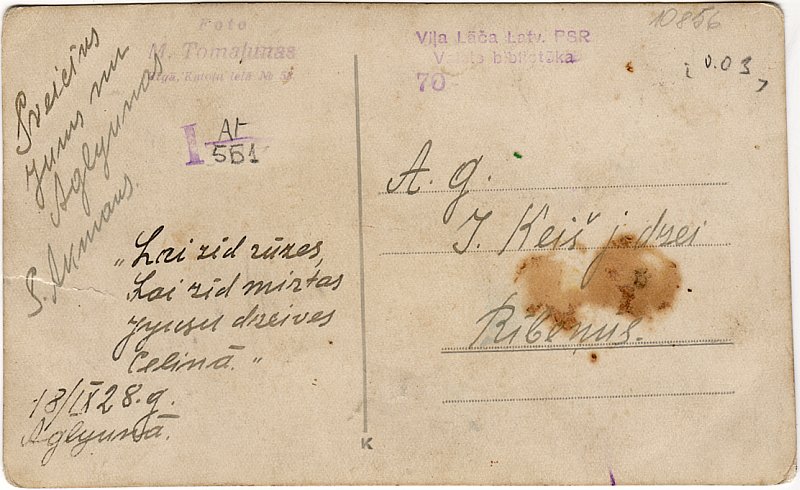 Foto
M. Tomaļunas
Rīgā, Katoļu ielā № 53
Viļa Lāča Latv. PSR
Valsts bibliotēka
70
10856
0.03,
I At
551
Sveicīns
Jums nu
Aglyunas
S. Akmans.
„Lai zīd rūzes,
Lai zīd mirtas
Jyusu dzeives
Celiņā."
18/IX 28. g.
Aglyunā.
A. g.
J. Keiš j. dzei
Ribeņus.
K